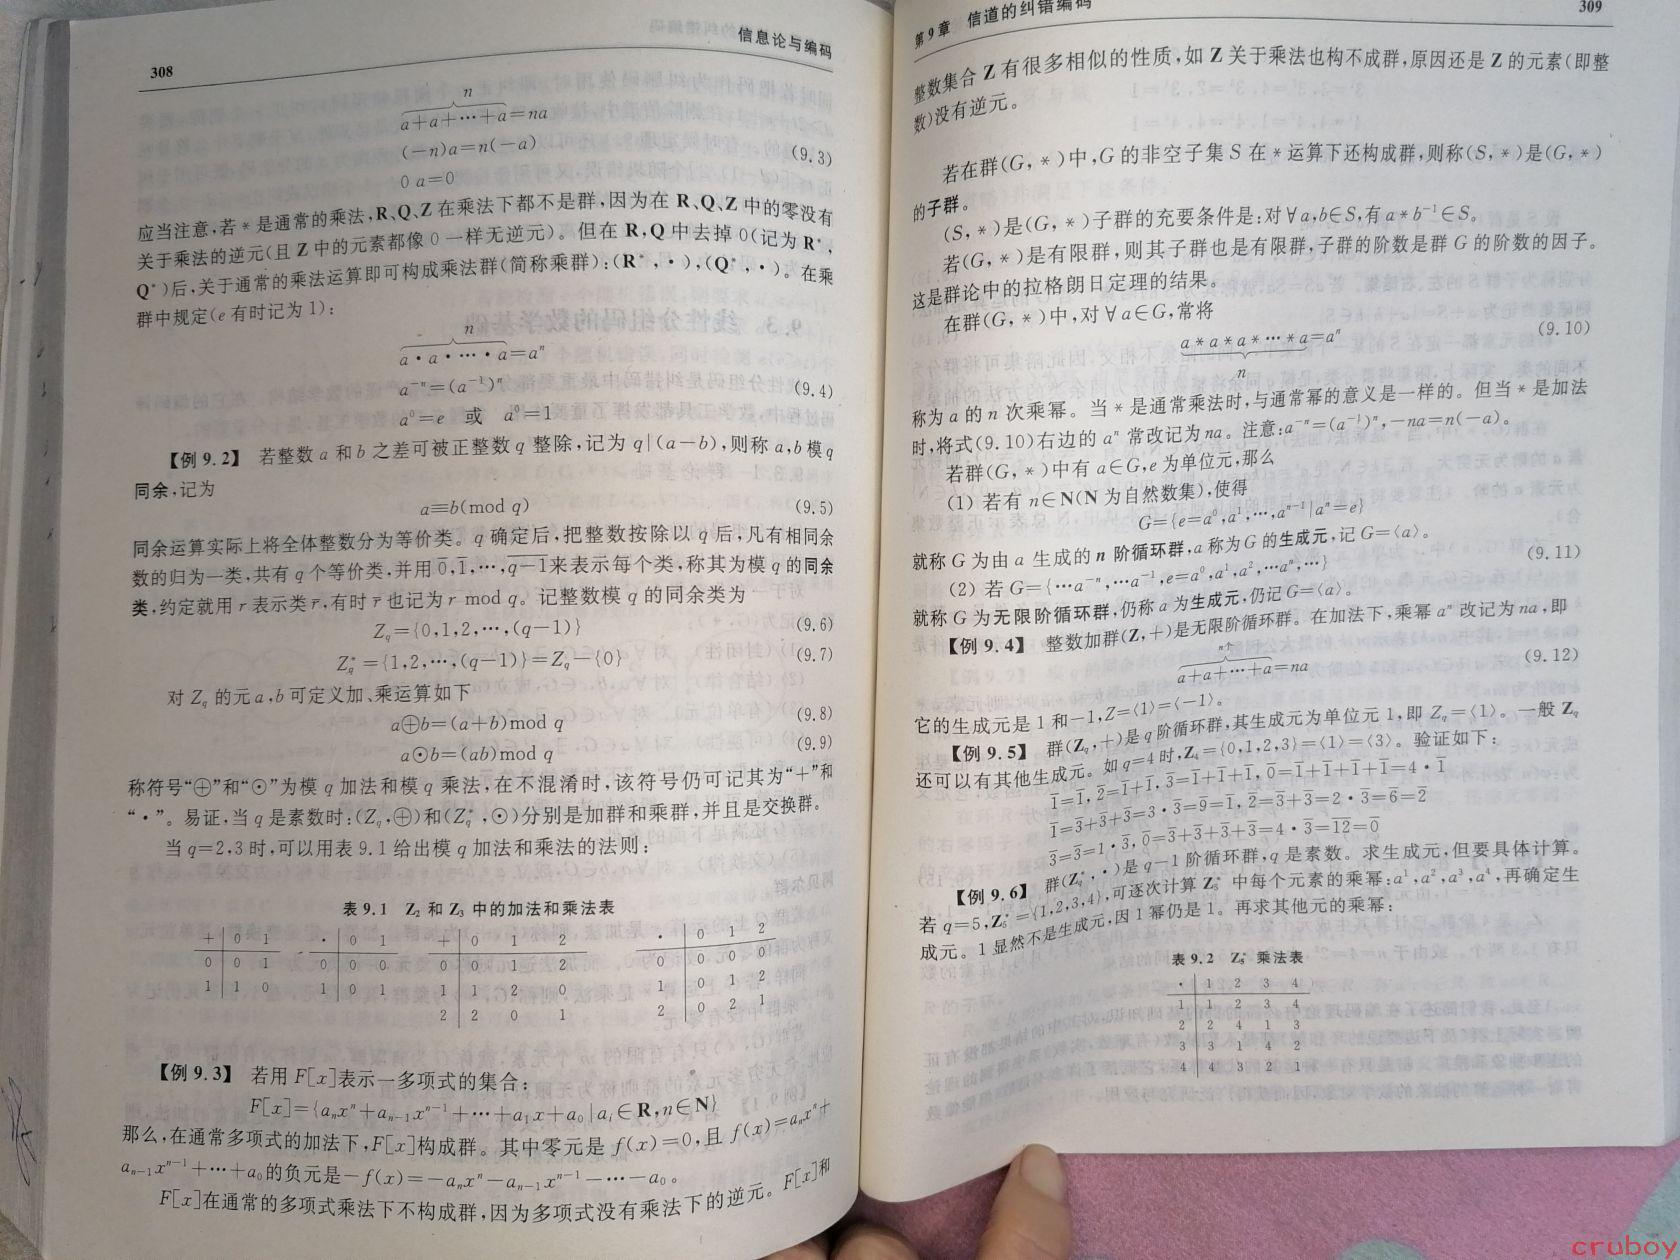 308
信息论与编码
n
a+a+…+a=na
(-n)a=n(-a)
(9.3)
0 a=0
应当注意,若*是通常的乘法,R、Q、Z在乘法下都不是群,因为在R、Q、Z中的零没有
关于乘法的逆元(且Z中的元素都像0一样无逆元)。但在R,Q中去掉0(记为R*,
Q*)后,关于通常的乘法运算即可构成乘法群(简称乘群):(R*,·),(Q*,·)。在乘
群中规定(e有时记为1):
n
a·a·…·a=aⁿ
a⁻ⁿ=(a⁻¹)ⁿ
(9.4)
a⁰=e 或 a⁰=1
【例9.2】 若整数a和b之差可被正整数q整除,记为q|(a-b),则称a,b模q
同余,记为
a≡b(mod q)
(9.5)
同余运算实际上将全体整数分为等价类。q确定后,把整数按除以q后,凡有相同余
数的归为一类,共有q个等价类,并用0̅,1̅,…,q̅-̅1̅来表示每个类,称其为模q的同余
类,约定就用r表示类r̅,有时r̅也记为r mod q。记整数模q的同余类为
Z_q={0,1,2,…,(q-1)}
(9.6)
Z_q*={1,2,…,(q-1)}=Z_q-{0}
(9.7)
对Z_q的元a,b可定义加、乘运算如下
a⊕b=(a+b)mod q
(9.8)
a⊙b=(ab)mod q
(9.9)
称符号“⊕”和“⊙”为模q加法和模q乘法,在不混淆时,该符号仍可记其为“+”和
“·”。易证,当q是素数时:(Z_q,⊕)和(Z_q*,⊙)分别是加群和乘群,并且是交换群。
当q=2,3时,可以用表9.1给出模q加法和乘法的法则:
表9.1 Z₂和Z₃中的加法和乘法表
+ 0 1 · 0 1 + 0 1 2 · 0 1 2
0 0 1 0 0 0 0 0 1 2 0 0 0 0
1 1 0 1 0 1 1 1 2 0 1 0 1 2
2 2 0 1 2 0 2 1
【例9.3】 若用F[x]表示一多项式的集合:
F[x]={aₙxⁿ+aₙ₋₁xⁿ⁻¹+…+a₁x+a₀|aᵢ∈R,n∈N}
那么,在通常多项式的加法下,F[x]构成群。其中零元是f(x)=0,且f(x)=aₙxⁿ+
aₙ₋₁xⁿ⁻¹+…+a₀的负元是-f(x)=-aₙxⁿ-aₙ₋₁xⁿ⁻¹-…-a₀。
F[x]在通常的多项式乘法下不构成群,因为多项式没有乘法下的逆元。F[x]和
第9章 信道的纠错编码
309
整数集合Z有很多相似的性质,如Z关于乘法也构不成群,原因还是Z的元素(即整
数)没有逆元。
若在群(G,*)中,G的非空子集S在*运算下还构成群,则称(S,*)是(G,*)
的子群。
(S,*)是(G,*)子群的充要条件是:对∀a,b∈S,有a*b⁻¹∈S。
若(G,*)是有限群,则其子群也是有限群,子群的阶数是群G的阶数的因子。
这是群论中的拉格朗日定理的结果。
在群(G,*)中,对∀a∈G,常将
a*a*a*…*a=aⁿ
(9.10)
n
称为a的n次乘幂。当*是通常乘法时,与通常幂的意义是一样的。但当*是加法
时,将式(9.10)右边的aⁿ常改记为na。注意:a⁻ⁿ=(a⁻¹)ⁿ,-na=n(-a)。
若群(G,*)中有a∈G,e为单位元,那么
(1) 若有n∈N(N为自然数集),使得
G={e=a⁰,a¹,…,aⁿ⁻¹|aⁿ=e}
就称G为由a生成的n阶循环群,a称为G的生成元,记G=⟨a⟩。
(2) 若G={…a⁻ⁿ,…a⁻¹,e=a⁰,a¹,a²,…aⁿ,…}
(9.11)
就称G为无限阶循环群,仍称a为生成元,仍记G=⟨a⟩。
【例9.4】 整数加群(Z,+)是无限阶循环群。在加法下,乘幂aⁿ改记为na,即
n个
a+a+…+a=na
(9.12)
它的生成元是1和-1,Z=⟨1⟩=⟨-1⟩。
【例9.5】 群(Z_q,+)是q阶循环群,其生成元为单位元1,即Z_q=⟨1⟩。一般Z_q
还可以有其他生成元。如q=4时,Z₄={0,1,2,3}=⟨1⟩=⟨3⟩。验证如下:
1̅=1̅, 2̅=1̅+1̅, 3̅=1̅+1̅+1̅, 0̅=1̅+1̅+1̅+1̅=4·1̅
1̅=3̅+3̅+3̅=3·3̅=9̅=1̅, 2̅=3̅+3̅=2·3̅=6̅=2̅
3̅=3̅=1·3̅, 0̅=3̅+3̅+3̅+3̅=4·3̅=1̅2̅=0̅
【例9.6】 群(Z_q*,·)是q-1阶循环群,q是素数。求生成元,但要具体计算。
若q=5,Z₅*={1,2,3,4},可逐次计算Z₅*中每个元素的乘幂:a¹,a²,a³,a⁴,再确定生
成元。1显然不是生成元,因1幂仍是1。再求其他元的乘幂:
表9.2 Z₅*乘法表
· 1 2 3 4
1 1 2 3 4
2 2 4 1 3
3 3 1 4 2
4 4 3 2 1
cruboy